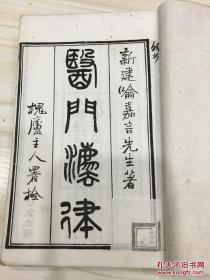 新建喻嘉言先生著
醫門灋律
槐廬主人署檢